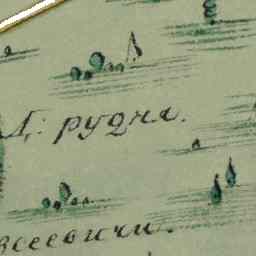 Д: рудня.
всеевичи.